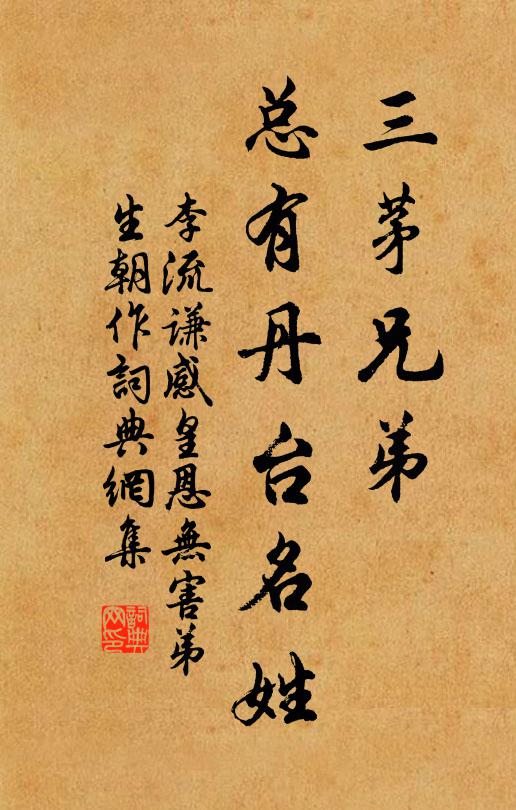 三茅兄弟
总有丹台名姓
李流谦感皇恩無害弟
生朝作詞典網集
詞典网印